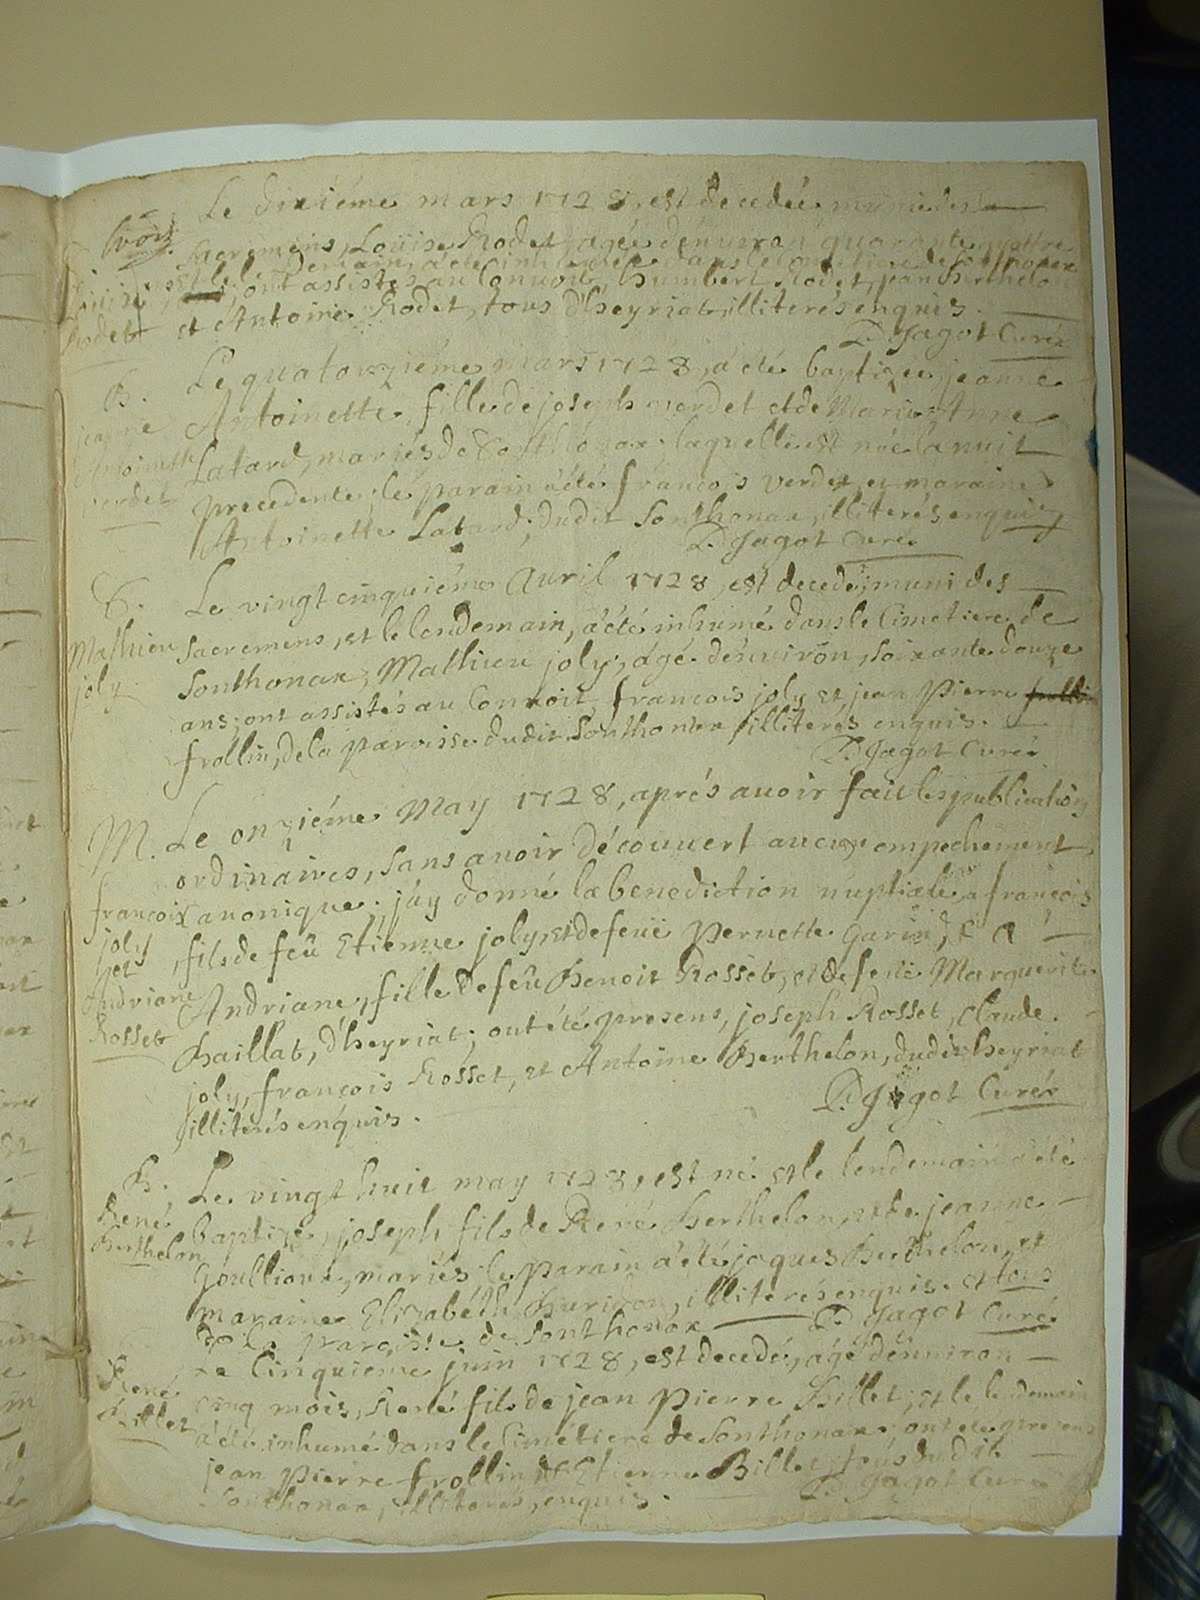 Le dixiéme mars 1728, est decedée, munie des
sacremens, Loüise Rodet, agée d'enuiron quarante quattre
et le lendemain, a été inhumée dans le cimetiere de Sonthonax
ont assistés au Conuoit, humbert Rodet, jean Berthelon
Loüise
Rodet
et Antoine Rodet, tous d'heyriat, illiterés enquis.
D. Jagot Curé
B.
Le quatorziéme mars 1728, a été baptizée, jeanne
jeanne
Antoinette
verdet
Antoinette, fille de joseph verdet et de Marie Anne
Latard, mariés de Sonthonax; laquelle est née la nuit
precedente; le parain a été françois verdet, et maraine
Antoinette Latard, dudit Sonthonax, illiterés enquis
D. Jagot Curé
S.
Mathieu
joly
Le vingt cinquiéme Auril 1728, est decedé, muni des
sacremens, et le lendemain, a été inhumé dans le Cimetiere de
Sonthonax, Mathieu joly, agé d'enuiron, soixante douze
ans; ont assistés au Conuoit, françois joly et jean Pierre
frollin, de la paroisse dudit Sonthonax illiterés enquis.
D. Jagot Curé
M.
françois
joly
et
Andriane
Rosset
Le onziéme May 1728, aprés auoir fait les publications
ordinaires, sans auoir découuert aucun empechement
canonique; j'ay donné la benediction nuptiale a françois
fils de feü Etienne joly, et de feüe Pernette Garin, & a
Andriane, fille de feü Benoit Rosset, et de feüe Marguerite
Baillat, d'heyriat; ont été presens, joseph Rosset, Claude
joly, françois Rosset, et Antoine Berthelon, dudit heyriat
illiterés enquis.
D. Jagot Curé
B.
René
Berthelon
Le vingt huit may 1728, est né et le lendemain a été
baptizé, joseph fils de René Berthelon et de jeanne
Goullioux, mariés; le parain a été jaques Berthelon, et
maraine Elizabéth illiterés enquis et tous
de la paroisse de Sonthonax
D. Jagot Curé
René
Billet
Le Cinquieme juin 1728, est decedé, agé d'enuiron
cinq mois, René fils de jean Pierre Billet, et le lendemain
a été inhumé dans le Cimetiere de Sonthonax; ont été presens
jean Pierre frollin et Etienne Billet tous dudit
Sonthonax, illiterés, enquis.
D. Jagot Curé